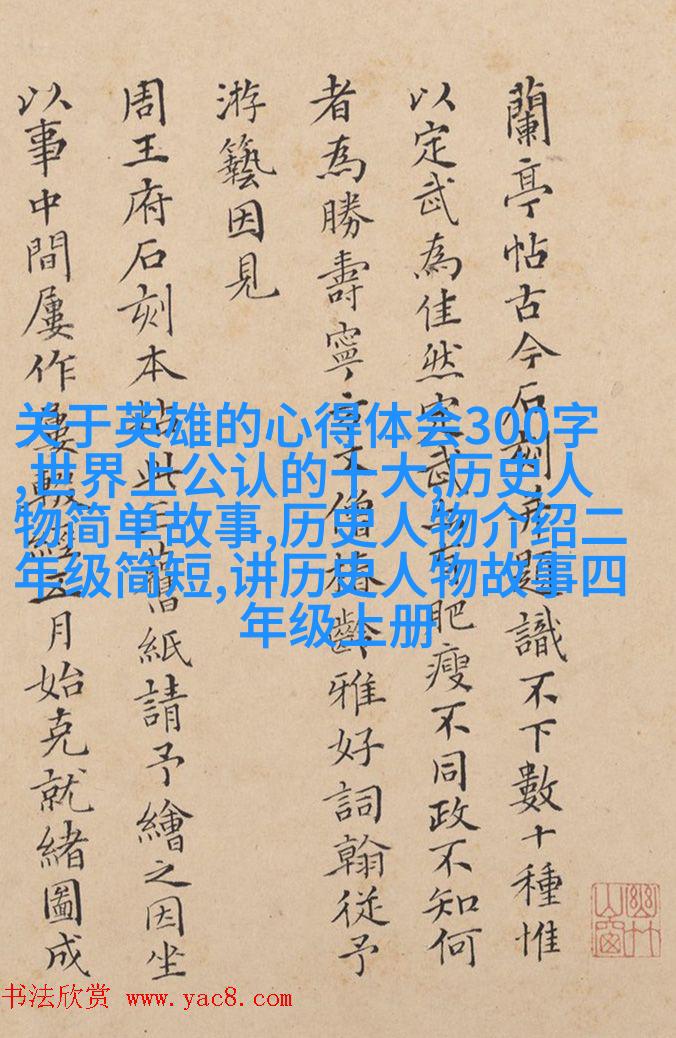 蘭亭帖古今石刻并題識不下數十種惟
以定武為佳然定武肥瘦不同政不知何
者為勝壽寧僧椿齡雅好詞翰從予
游藝因見
周王府石刻本帖此舊紙請予繪之因坐
以事中間屢作屢輟經五月始克就緒圖成
幽竹山窗
关于英雄的心得体会300字
,世界上公认的十大,历史人
物简单故事,历史人物介绍二
年级简短,讲历史人物故事四
年级上册
书法欣赏 www.yac8.com